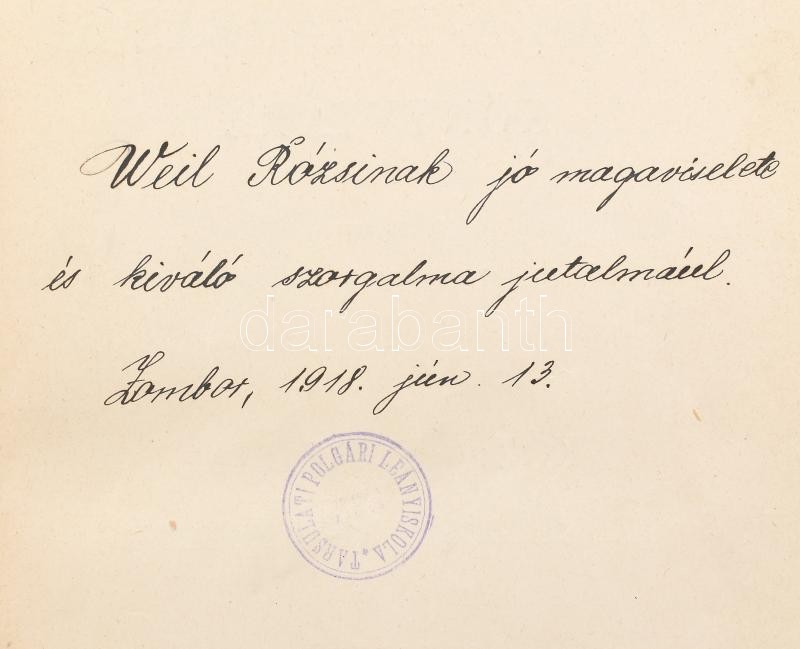 Weil Rózsinak jó magaviselete
és kiváló szorgalma jutalmául.
darabanth
Zombor, 1918. jún. 13.
TÁRSULATI POLGÁRI LEÁNYISKOLA